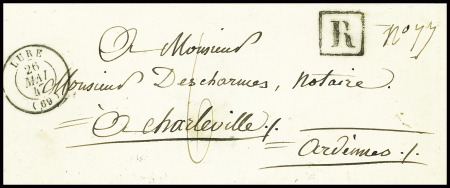 LURE
26
MAI
(69)
R
N° 77
A Monsieur
Monsieur Descharmes, Notaire.
à Charleville /.
Ardennes /.